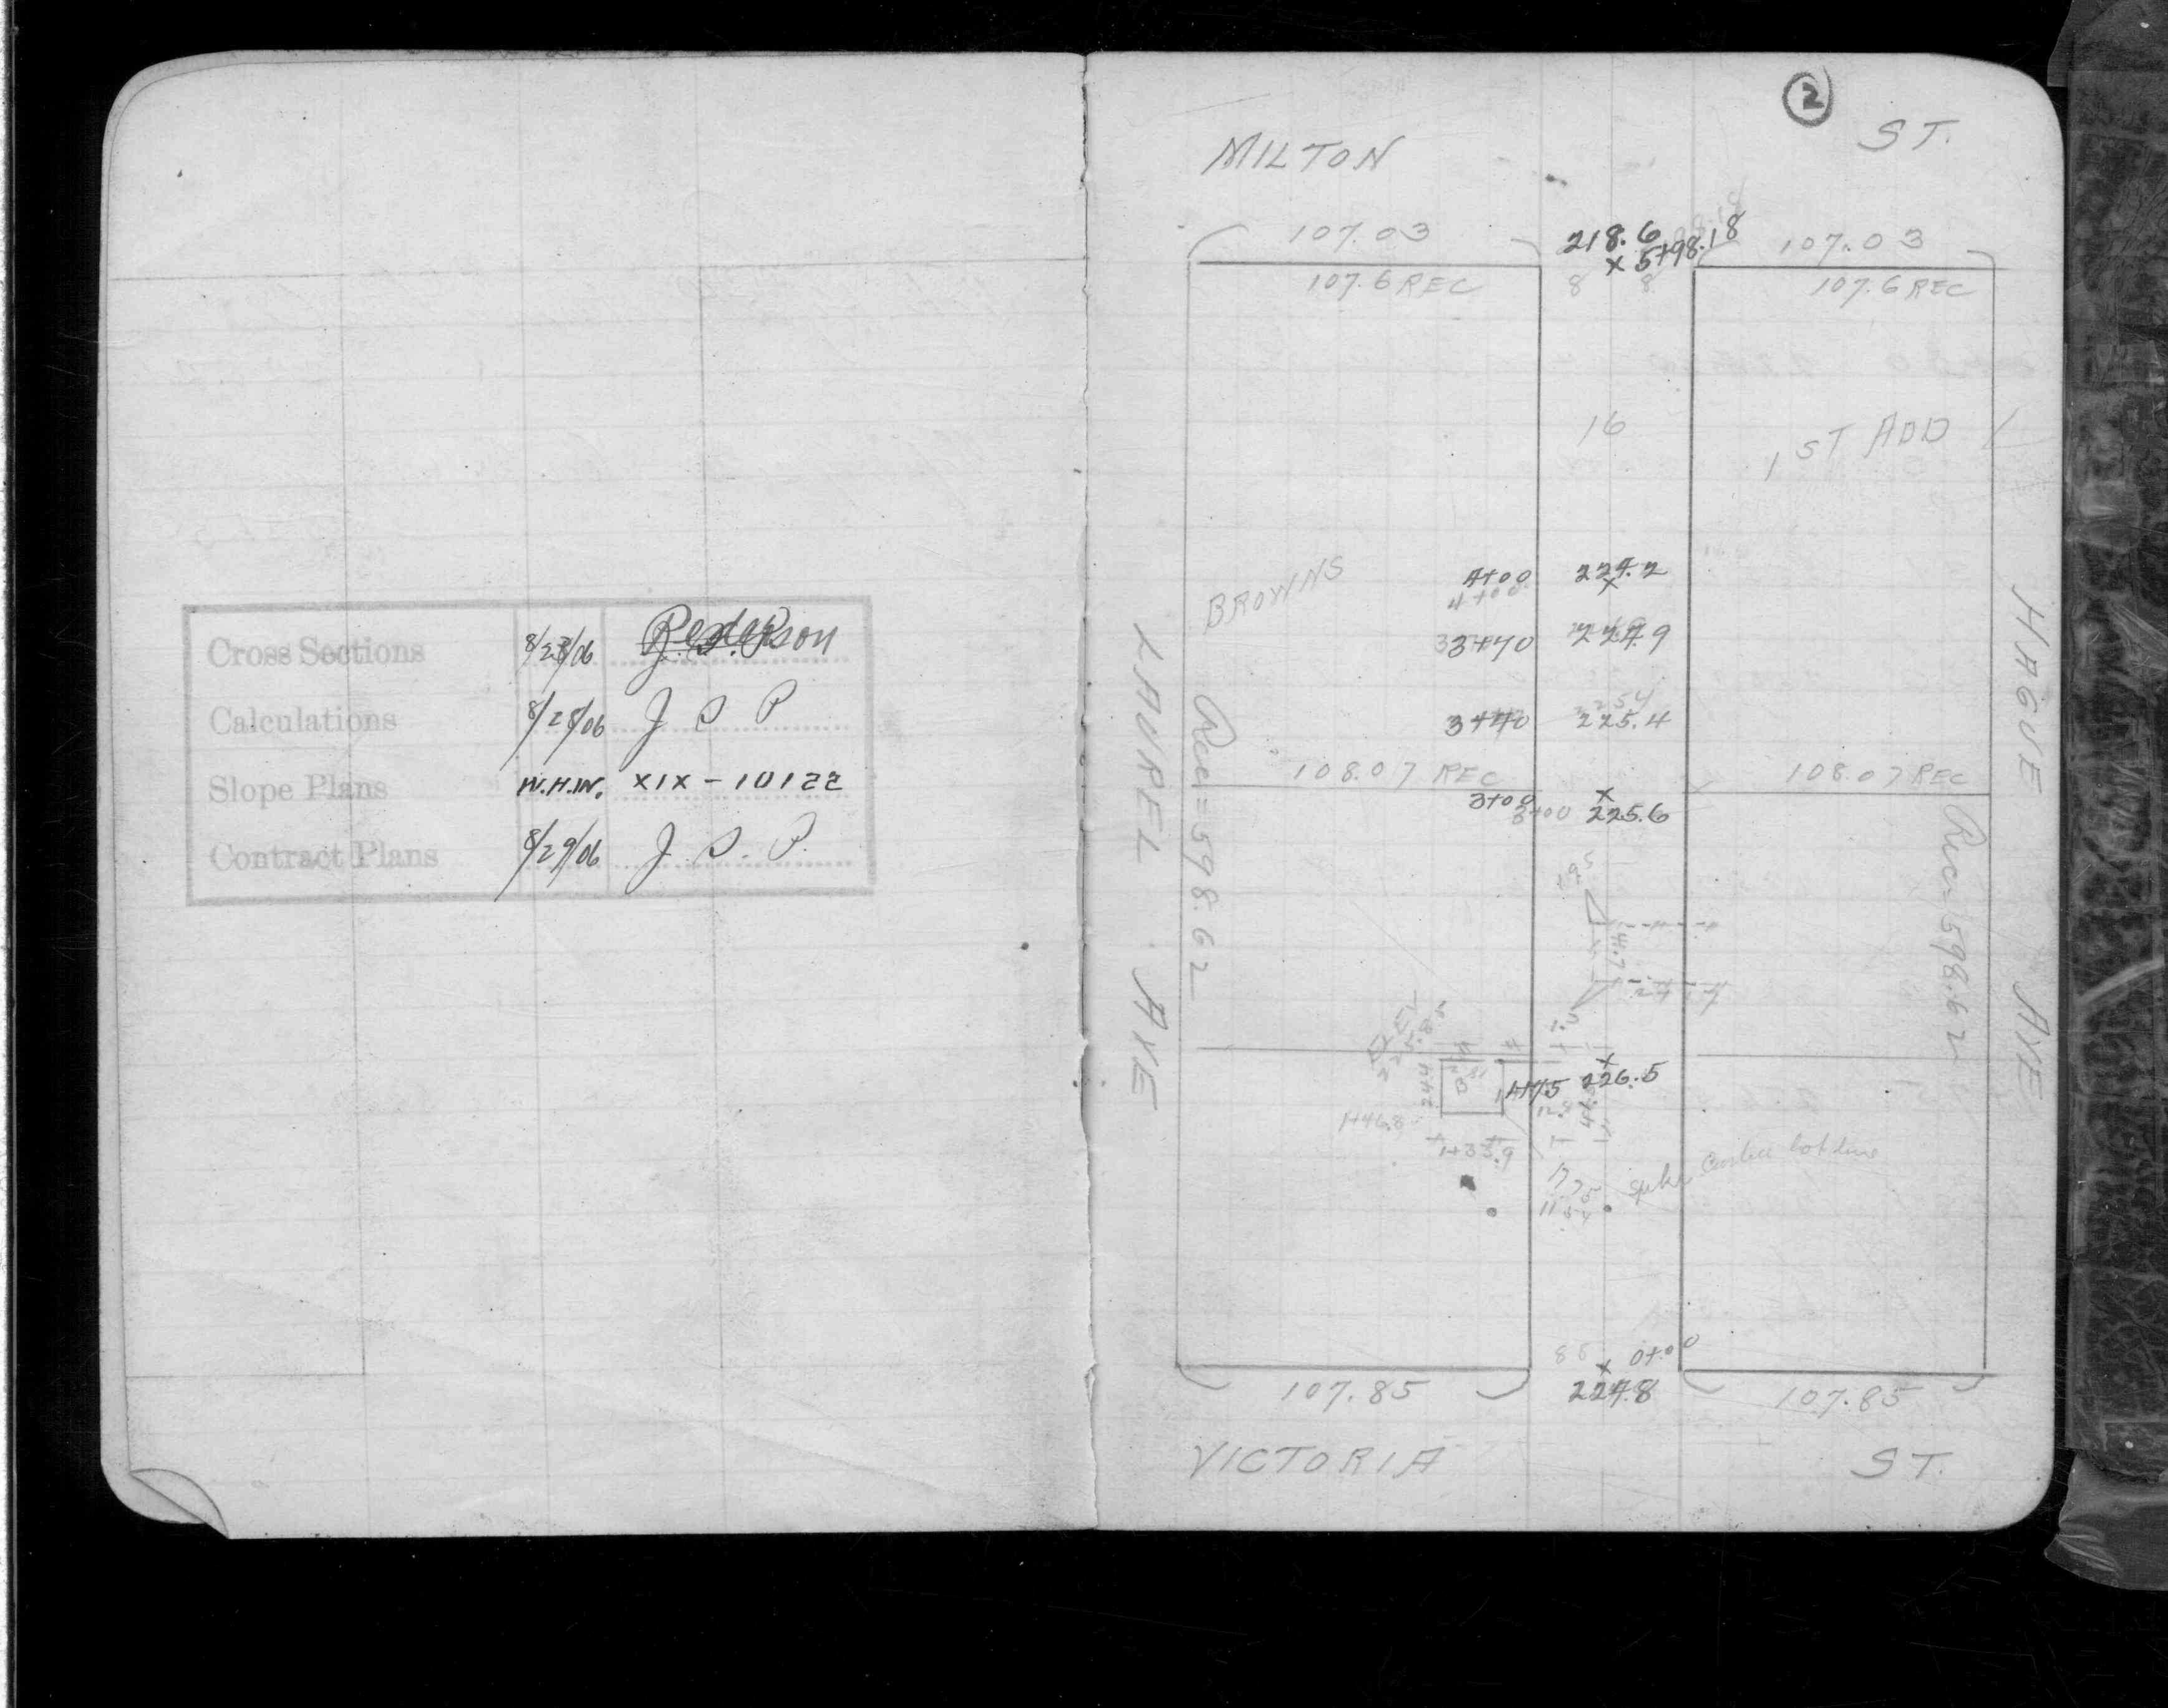 Cross Sections 8/28/06 J. S. P.
Calculations 8/28/06 J S P
Slope Plans W.H.W. XIX-10122
Contract Plans 8/29/06 J. S. P.
2
MILTON ST.
107.03 218.6 107.03
x 5+98.18
107.6 REC 8 8 107.6 REC
16
1ST ADD
BROWNS
4+00 224.2
4+00 x
3+70 224.9
3+40 225.4
108.07 REC x 108.07 REC
3+00 3+00 225.6
LAUREL AVE
Rec = 598.62
HAGUE AVE
Rec. 598.62
19.5
14.7
ELEV
225.85
x
1+75 226.5
1+46.8
1+33.9
8 8 x 0+00
107.85 224.8 107.85
VICTORIA ST.